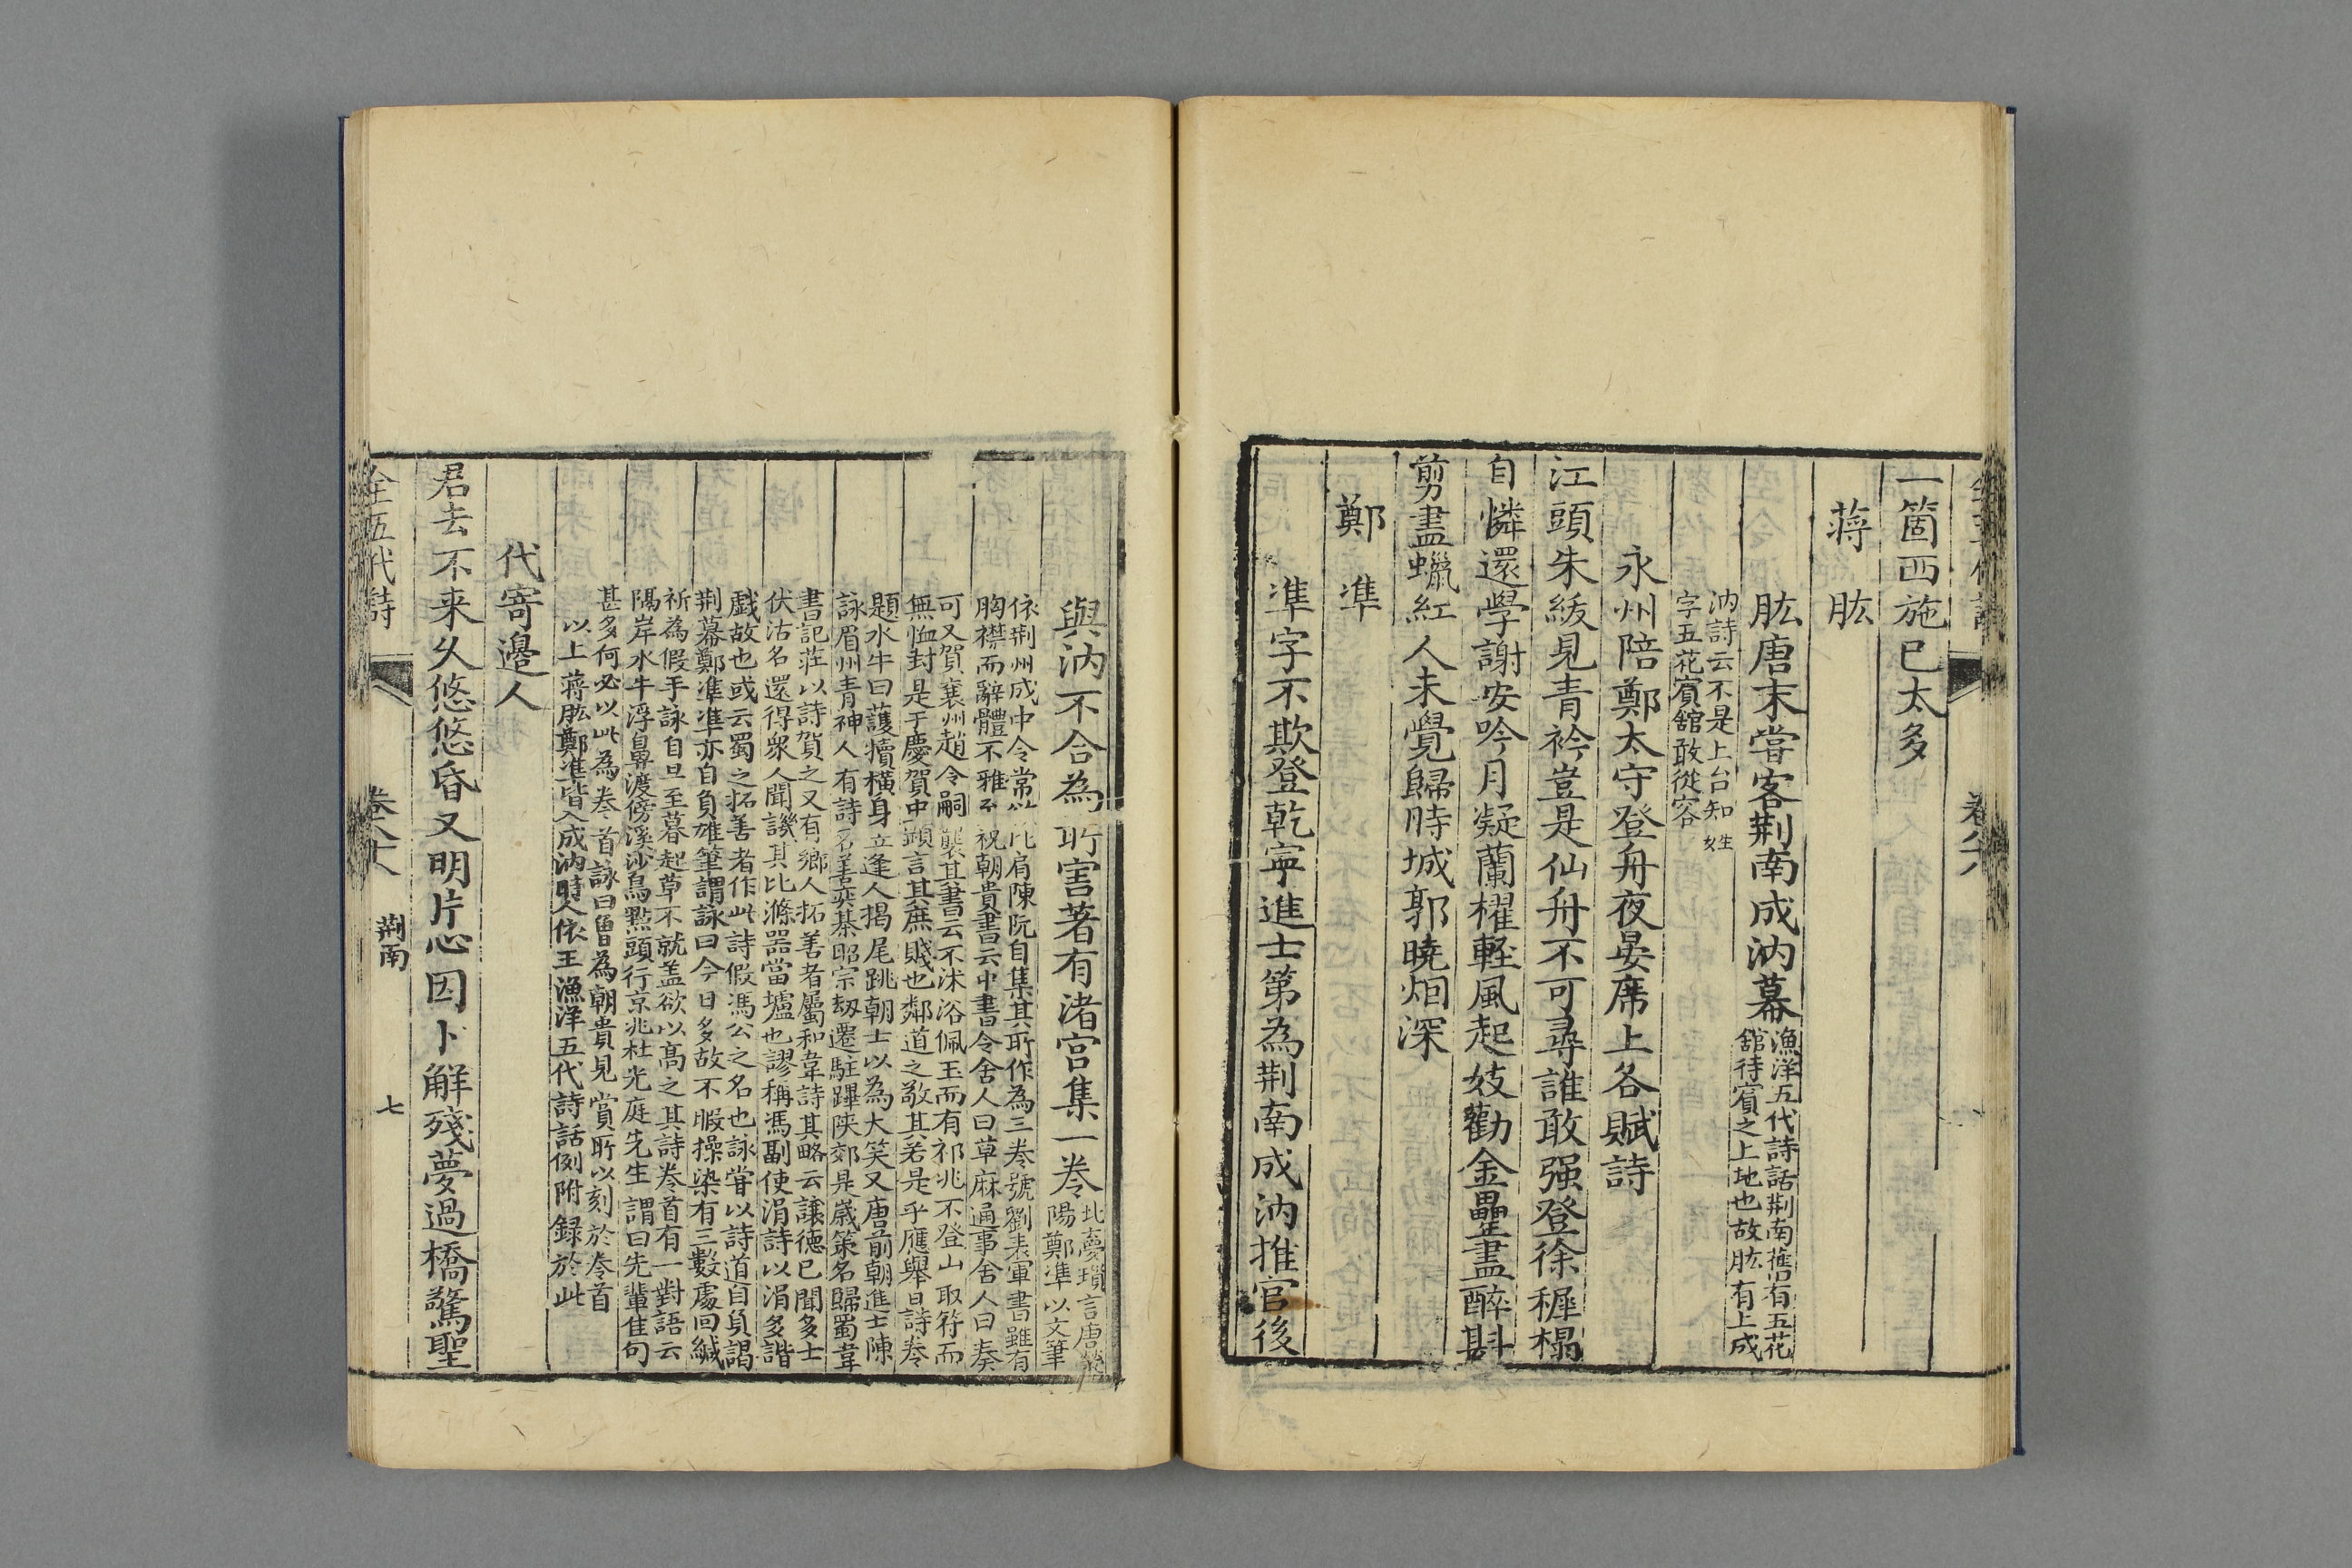 一箇西施已太多
蔣肱
肱唐末嘗客荆南成汭幕
漁洋五代詩話荆南舊有五花
舘待賔之上地也故肱有上成
汭詩云不是上台知姓
字五花賔舘敢從容
永州陪鄭太守登舟夜宴席上各賦詩
江頭朱紱見青衿豈是仙舟不可尋誰敢强登徐穉榻
自憐還學謝安吟月凝蘭櫂輕風起妓勸金罍盡醉斟
剪盡蠟紅人未覺歸時城郭曉烟深
鄭準
準字不欺登乾寧進士第為荆南成汭推官後
與汭不合為所害著有渚宮集一卷
北夢瑣言唐滎
陽鄭準以文筆
依荆州成中令常以比肩陳阮自集其所作為三卷號劉表軍書雖有
胸襟而辭體不雅至祝朝貴書云中書令舍人曰草麻通事舍人曰奏
可又賀襄州趙令嗣襲其書云不沐浴佩玉而有祁兆不登山取符而
無恤封是于慶賀中顯言其庶賤也鄰道之敬其若是乎應舉日詩卷
題水牛曰護犢橫身立逢人揭尾跳朝士以為大笑又唐前朝進士陳
詠眉州青神人有詩名善奕棊昭宗刼還駐蹕陝郊是歲策名歸蜀韋
書記莊以詩賀之又有鄉人拓善者屬和韋詩其略云讓德已聞多士
伏沽名還得衆人聞譏其比滌器當壚也謬稱馮副使涓詩以涓多諧
戲故也或云蜀之拓善者作此詩假馮公之名也詠嘗以詩道自負謁
荆幕鄭準準亦自負雄筆謂詠曰今日多故不暇操染有三數處回緘
祈為假手詠自旦至暮起草不就盖欲以高之其詩卷首有一對語云
隔岸水牛浮鼻渡傍溪沙鳥點頭行京兆杜光庭先生謂曰先輩佳句
甚多何必以此為卷首詠曰曾為朝貴見賞所以刻於卷首
以上蔣肱鄭準皆入成汭時人依王漁洋五代詩話例附録於此
代寄邊人
君去不来久悠悠昏又明片心因卜解殘夢過橋驚聖
全五代詩 卷八十八 荆南 七